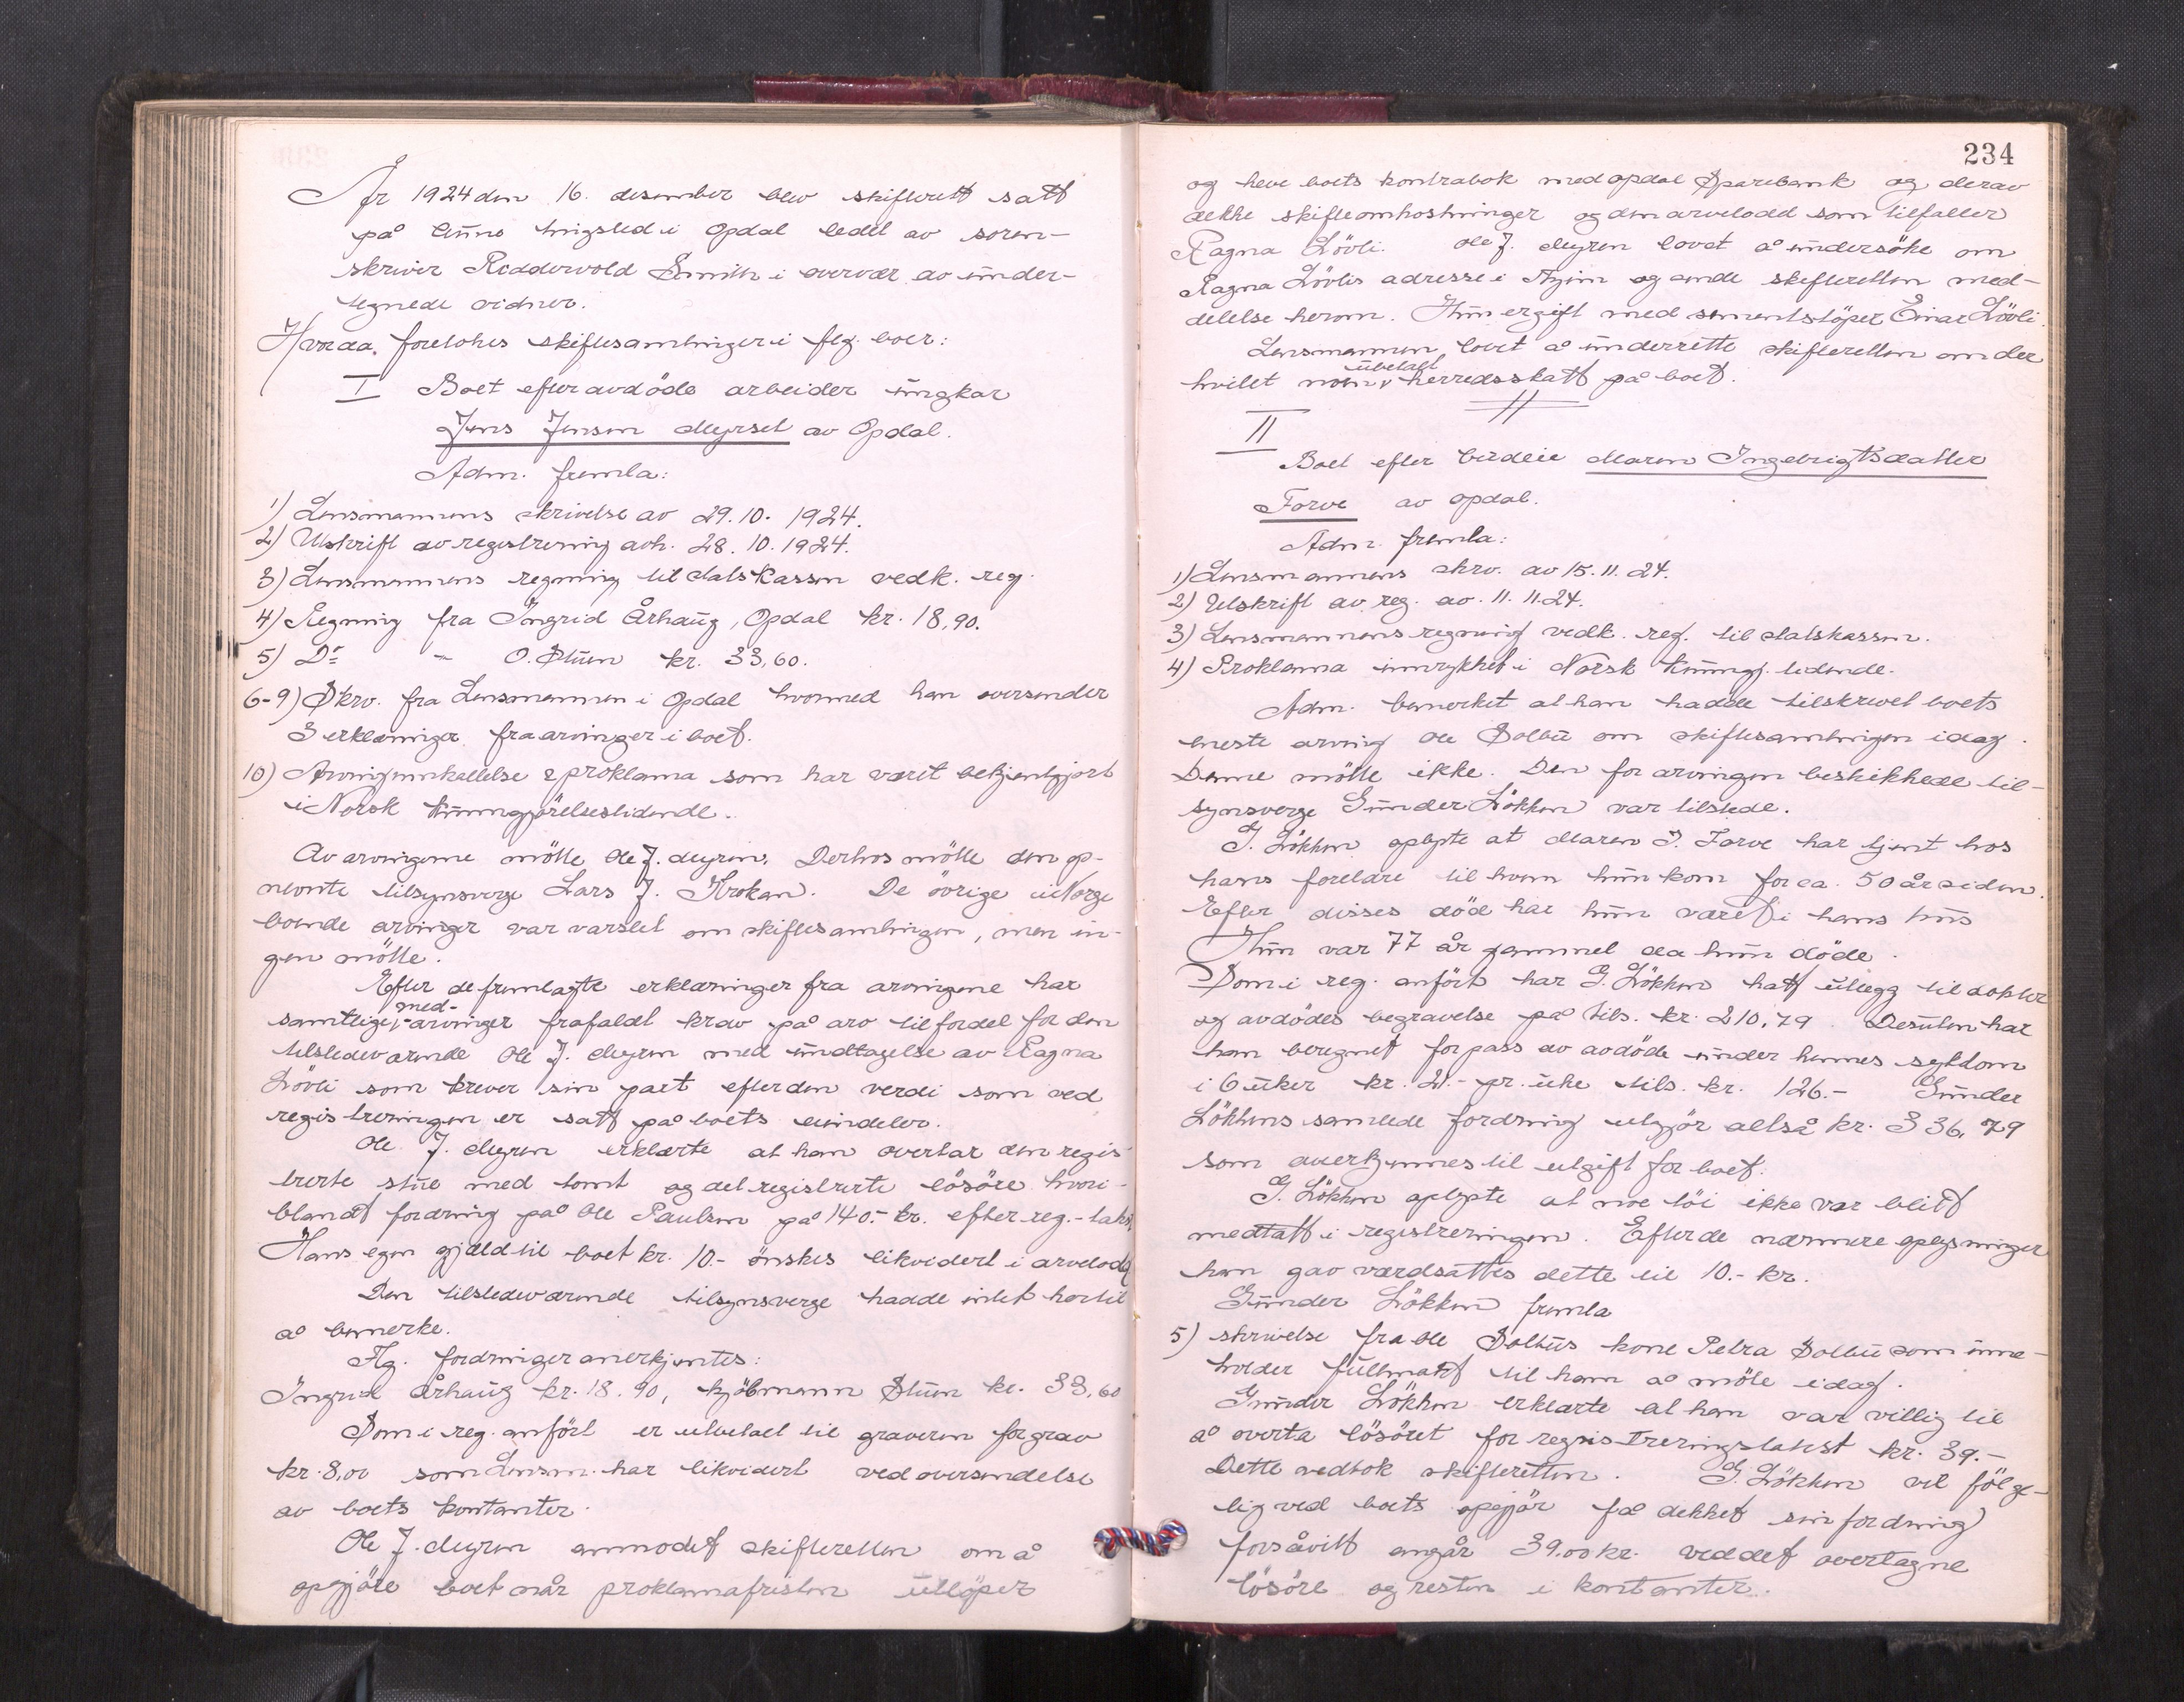 År 1924 den 16. desember blev skifterett satt
på Aune tingsted i Opdal ledet av soren-
skriver Roddervold Smith i overvær av under-
tegnede vidner.
Hvorda foretokes skiftesamlinger i flg. boer:
I Boet efter avdöde arbeider ungkar
Jens Jensen Myrset av Opdal.
Adm. fremla:
1) Lensmannens skrivelse av 29.10.1924.
2) Utskrift av registrering avh. 28.10.1924.
3) Lensmannens regning til statskassen vedk. reg.
4) Regning fra Ingrid Århaug, Opdal kr. 18,90.
5) Do - O. Stuen kr. 33,60.
6-9) Skrv. fra Lensmannen i Opdal hvormed han oversender
3 erklæringer fra arvinger i boet.
10) Arvinginnkallelse & proklama som har været bekjentgjort
i Norsk Kunngjörelsestidende.
Av arvingerne mötte Ole J. Myren. Derhos mötte den op-
nevnte tilsynsverge Lars J. Krokan. De övrige i Norge
boende arvinger var varslet om skiftesamlingen, men in-
gen mötte.
Efter de fremlagte erklæringer fra arvingene har
samtlige med-arvinger frafaldt krav på arv til fordel for den
tilstedeværende Ole J. Myren med undtagelse av Ragna
Lövli som krever sin part efter den verdi som ved
registreringen er satt på boets eiendeler.
Ole J. Myren erklærte at han overtar den regis-
trerte stue med tomt og det registrerte lösöre hvori-
blandt fordring på Ole Paulsen på 140.- kr. efter reg.-takst
Hans egen gjæld til boet kr. 10.- önskes likvidert i arvelodd
Den tilstedeværende tilsynsverge hadde intet hertil
å bemerke.
Flg. fordringer anerkjentes:
Ingrid Århaug kr. 18.90, kjöbmann Stuen kr. 33,60
Som i reg. anfört er utbetalt til graveren for grav
kr. 8,00 som Lensm. har likvidert ved oversendelse
av boets kontanter.
Ole J. Myren anmodet skifteretten om å
opgjöre boet når proklamafristen utlöper
234
og heve boets kontrabok med Opdal Sparebank og derav
dekke skifteomkostninger og den arvelodd som tilfaller
Ragna Lövli. Ole J. Myren lovet å undersöke om
Ragna Lövlis adresse i og sende skifteretten med-
delelse herom. Hun er gift med sementstöper Einar Lövli.
Lensmannen lovet å underrette skifteretten om der
ubetalt
hvilet noen herredsskatt på boet.
II
Boet efter budeie Maren Ingebrigtsdatter
Torve av Opdal.
Adm. fremla:
1) Lensmannens skrv. av 15.11.24.
2) Utskrift av reg. av. 11.11.24.
3) Lensmannens regning vedk. reg. til statskassen.
4) Proklama innrykket i Norsk kunngj. tidende.
Adm. bemerket at han hadde tilskrevet boets
eneste arving Ole Dolbu om skiftesamlingen idag.
Denne mötte ikke. Den for arvingen beskikkede til-
synsverge Gunder Lökken var tilstede.
G. Lökken oplyste at Maren I. Torve har tjent hos
hans foreldre til hvem hun kom for ca. 50 år siden.
Efter disses död har hun været i hans hus
Hun var 77 år gammel da hun döde.
Som i reg. anfört har G. Lökken hatt utlegg til doktor
og avdödes begravelse på tils. kr. 210,79. Desuten har
han beregnet for pass av avdöde under hennes sykdom
i 6 uker kr. 21.- pr. uke tils. kr. 126.- Gunder
Lökkens samlede fordring utgjör altså kr. 336,79
som anerkjennes til utgift for boet.
G. Lökken oplyste at noe töi ikke var blitt
medtatt i registreringen. Efter de nærmere oplysninger
han gav værdsattes dette til 10.- kr.
Gunder Lökken fremla
5) skrivelse fra Ole Dolbus kone Petra Dolbu som inne-
holder fullmakt til ham å möte idag.
Gunder Lökken erklærte at han var villig til
å overta lösöret for registreringstakst kr. 39.-
Dette vedtok skifteretten. G. Lökken vil fölge-
lig ved boets opgjör få dekket sin fordring
forsåvitt angår 39.00 kr. ved det overtagne
lösöre og resten i kontanter.